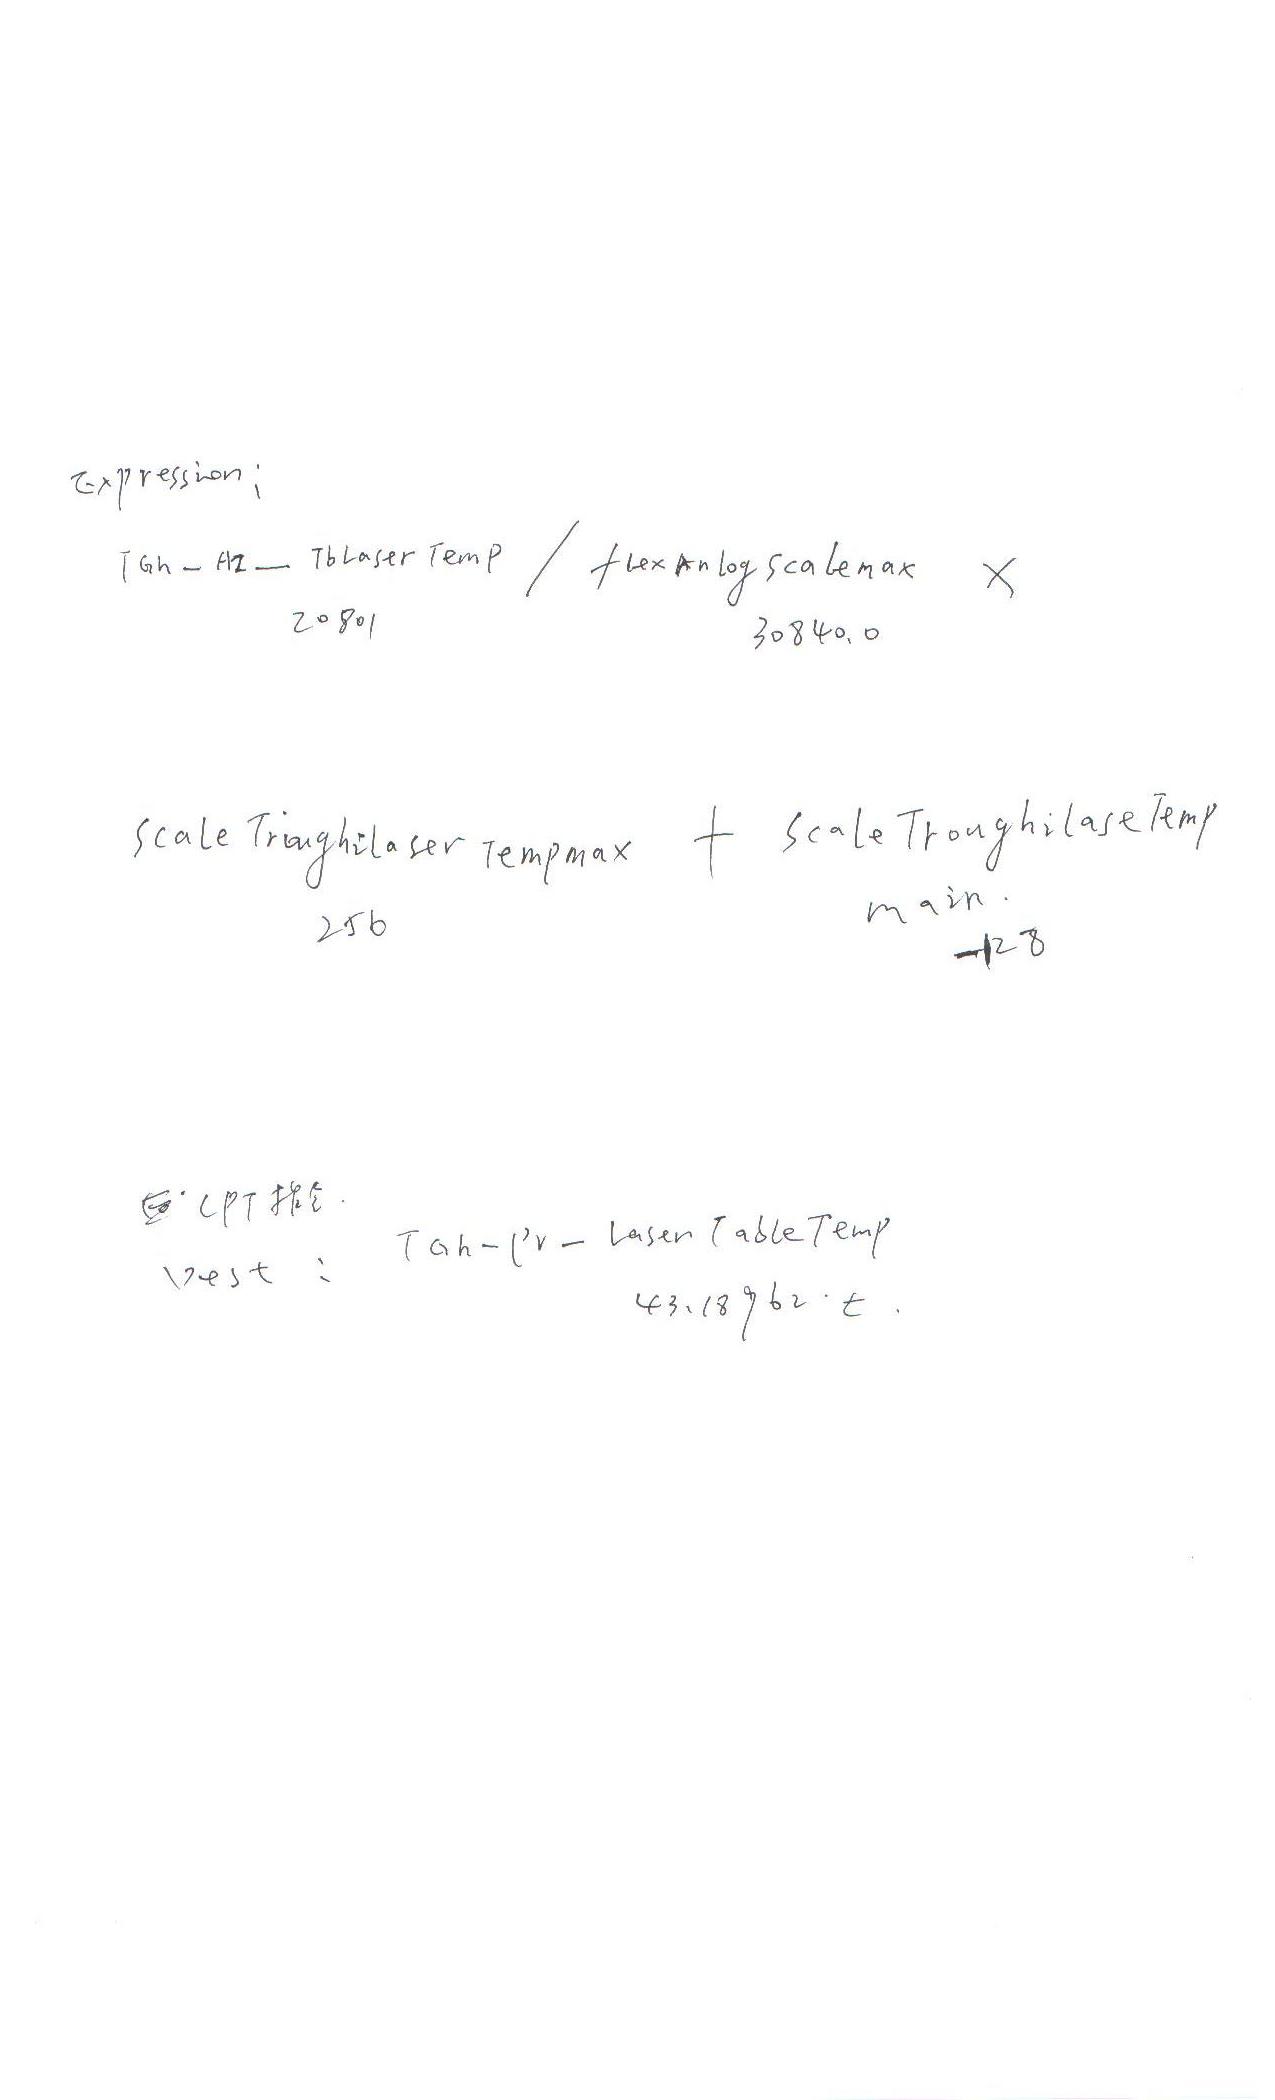 Expression;
TGh-AI-TbLaserTemp / flexAnlogscalemax ×
20801 30840.0
scaleTrioughilaserTempmax + scaleTroughilaseTemp
main.
256 -128
CPT指令.
Dest : TGh-Pv-LaserTableTemp
43.18962.t.